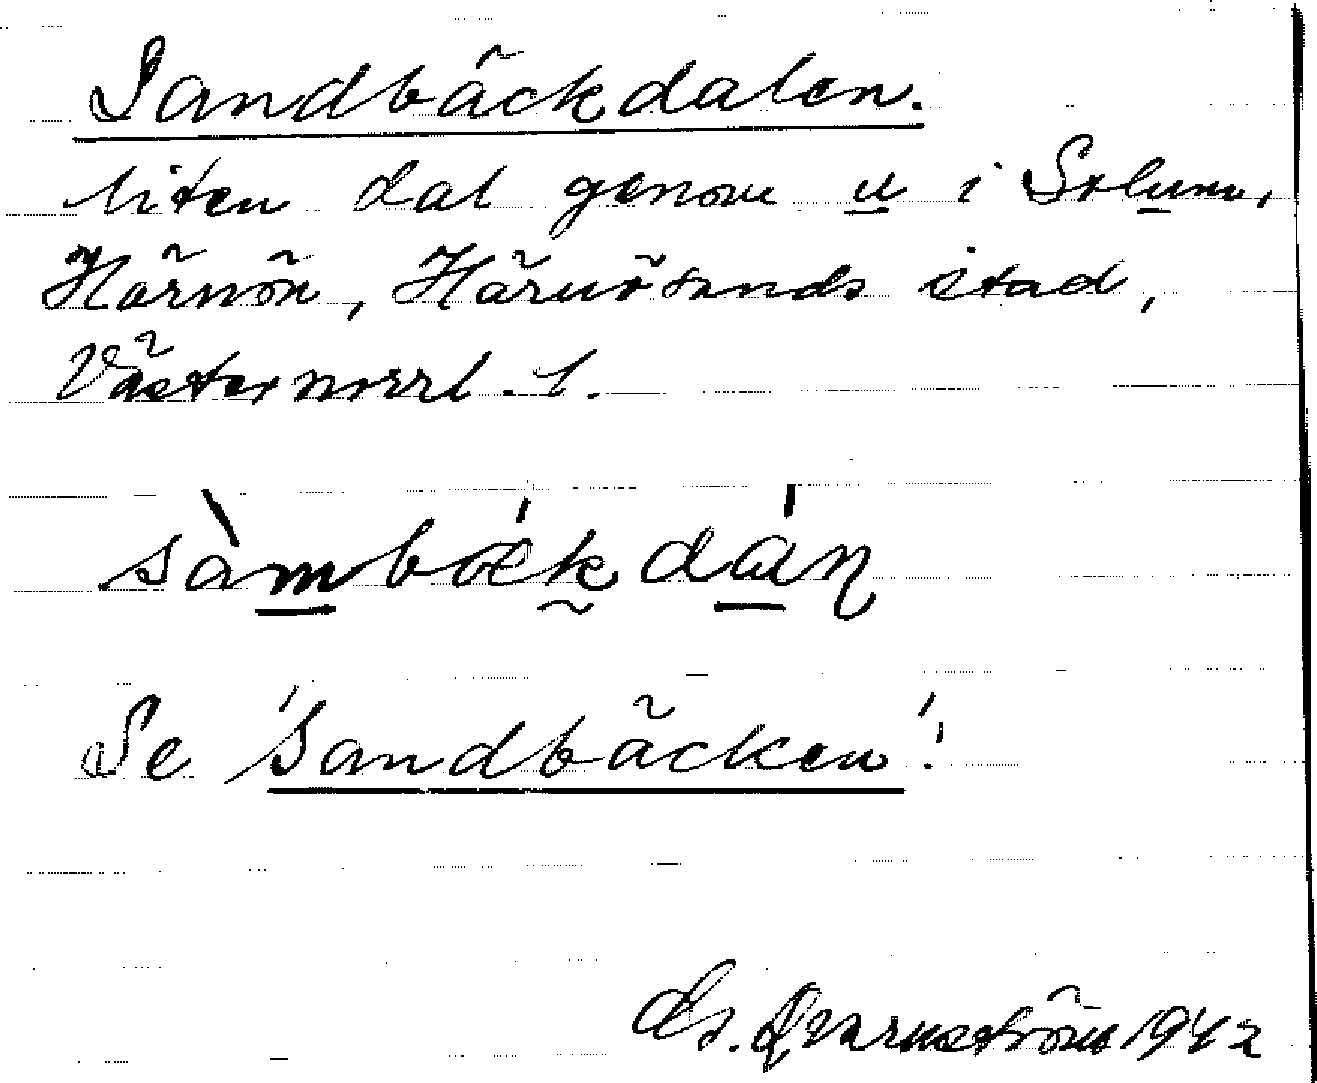 Sandbäckdalen.
liten dal genom u i Solum,
Härnön, Härnösands stad,
Västernorrl. l.
sàmbǽkdáɳ
Se 'Sandbäcken'!
Qvarnström 1942